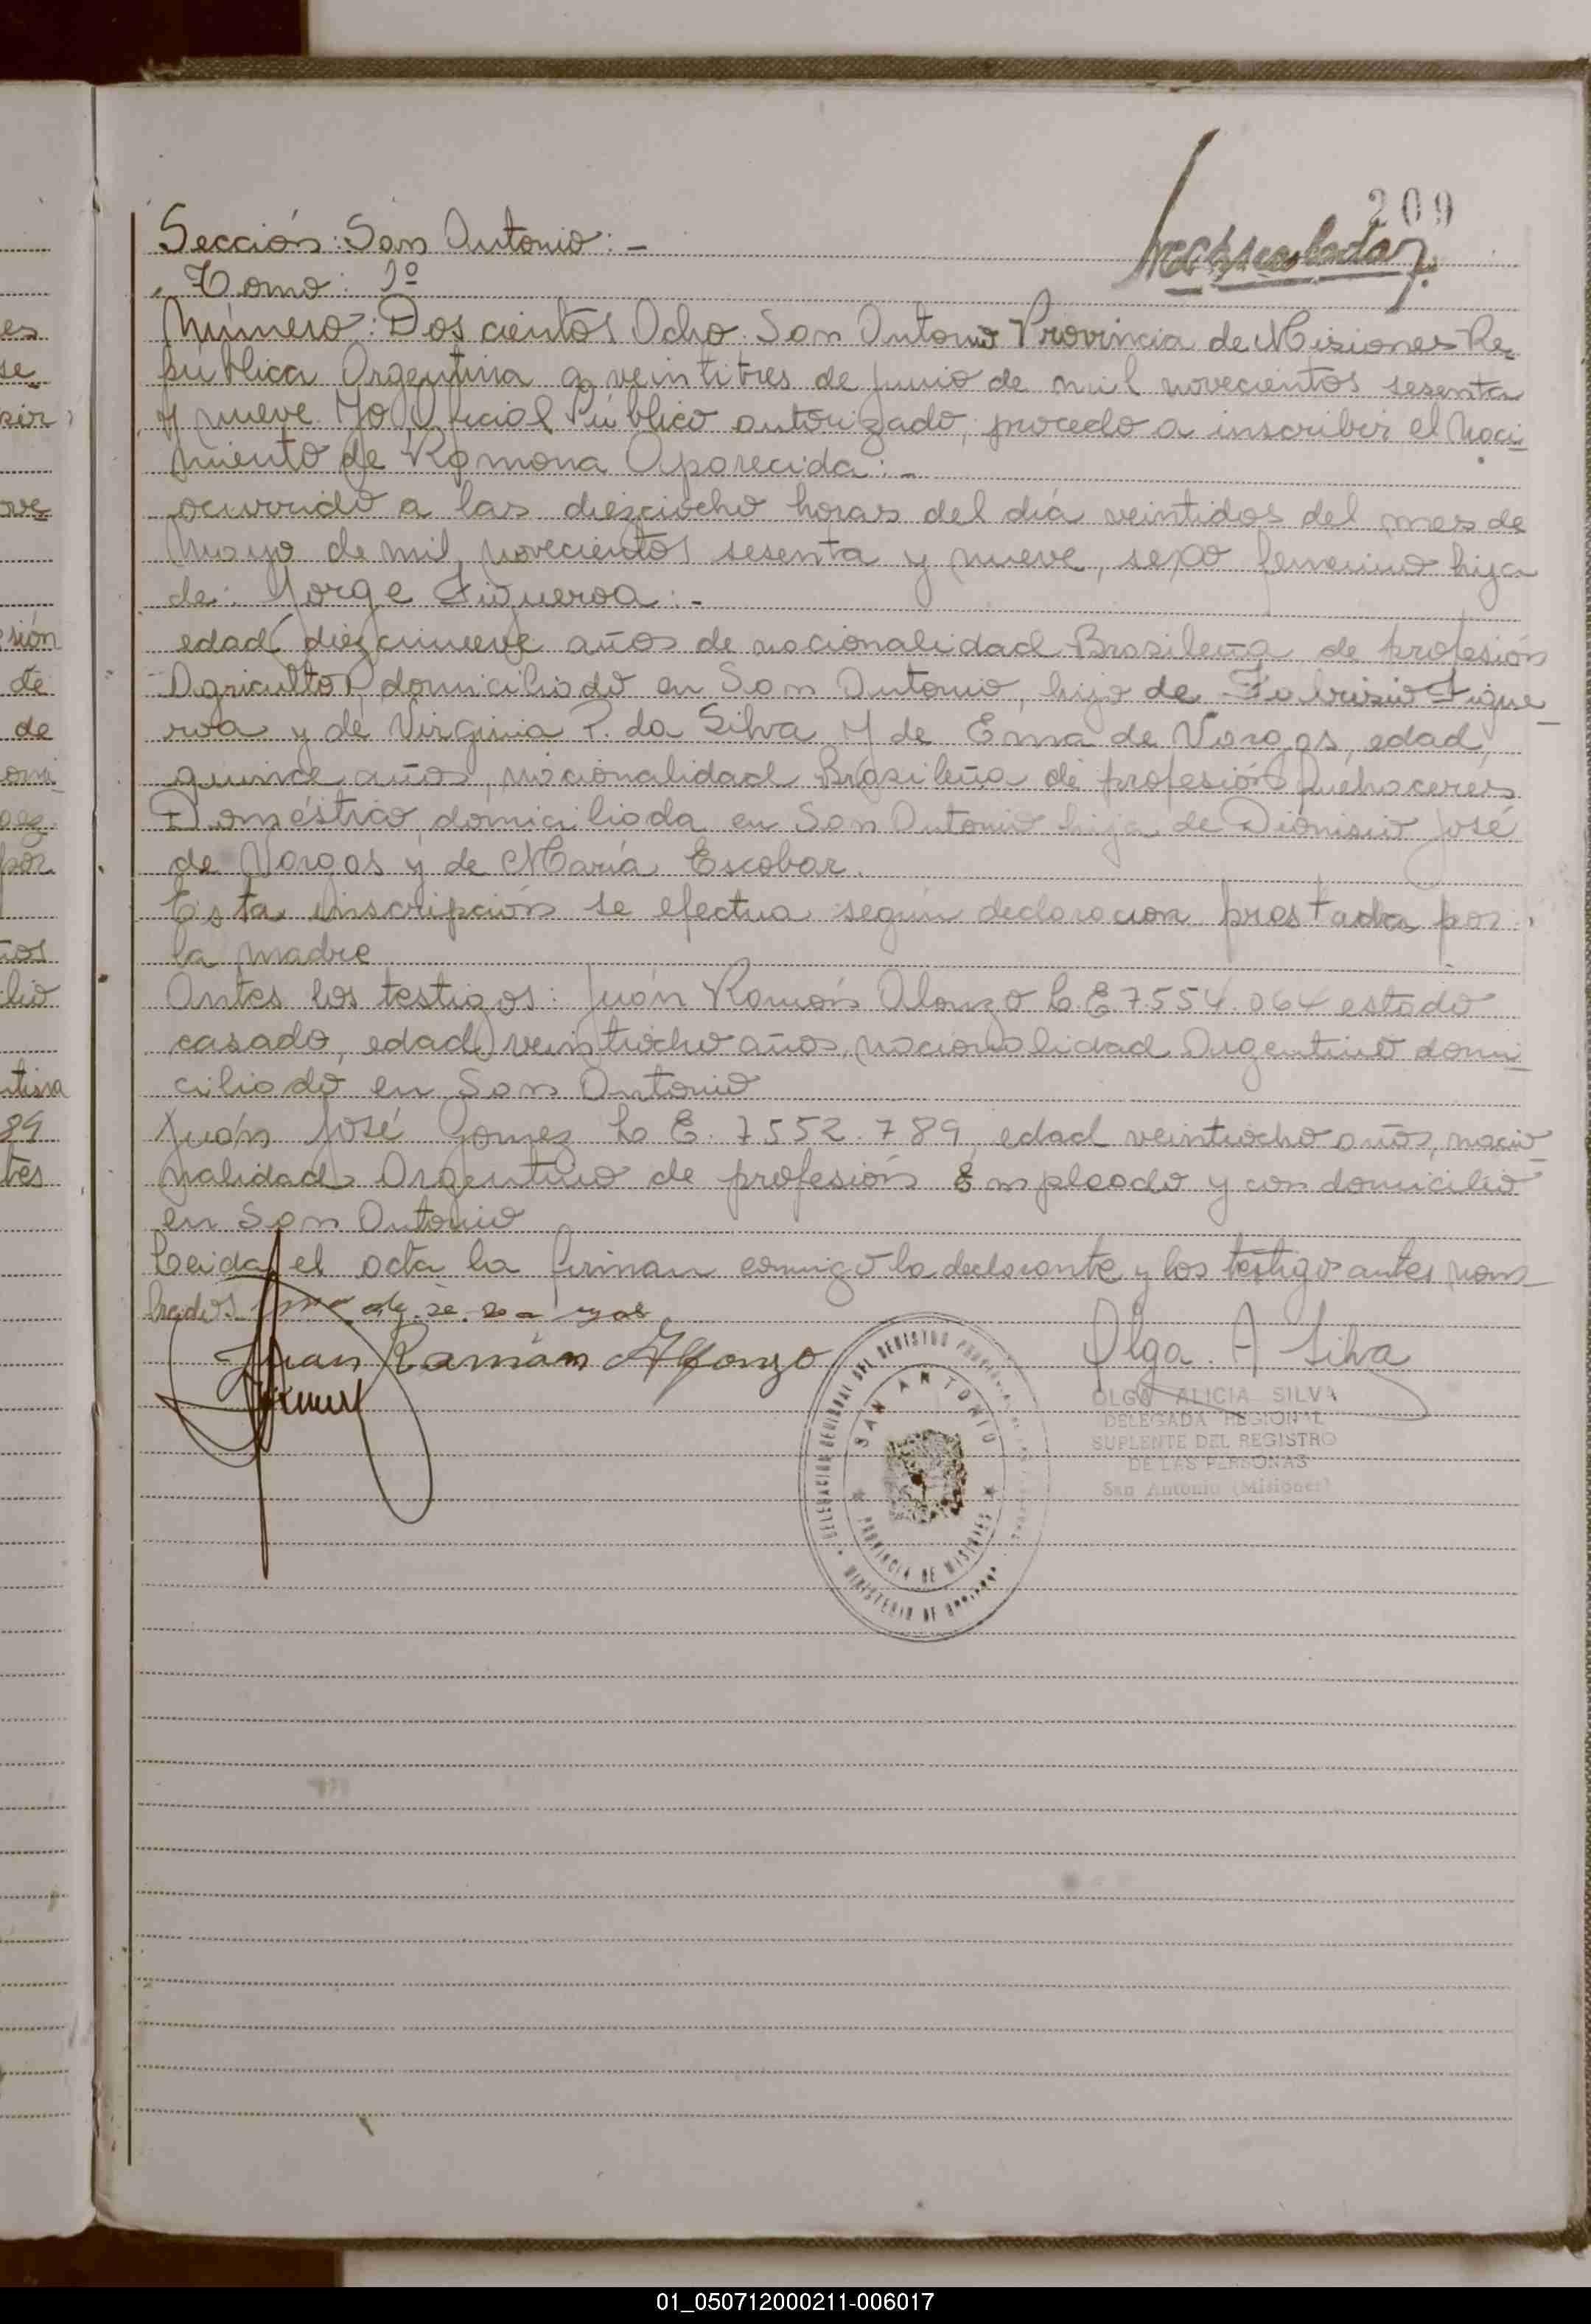 209
Sección: San Antonio: -
Tomo: 1º
Número: Dos cientos Ocho San Antonio Provincia de Misiones Re-
pública Argentina a veintitres de Junio de mil novecientos sesenta
y nueve Yo Oficial Público autorizado, procedo a inscribir el Naci-
miento de Ramona Aparecida: -
ocurrido a las dieziocho horas del día veintidos del mes de
Mayo de mil novecientos sesenta y nueve, sexo femenino hija
de: Jorge Figueroa: -
edad diezinueve años de nacionalidad Brasileña de profesión
Agricultor, domiciliado en San Antonio, hijo de Figue-
roa y de Virginia P. da Silva Y de Ema de Vargas, edad,
quince años, nacionalidad Brasileña de profesión Quehaceres
Doméstico, domiciliada en San Antonio hija de Dionisio José
de Vargas y de María Escobar.
Esta inscripción se efectua según declaracion prestada por
la madre
Antes los testigos: Juán Ramón Alonzo L.E 7.554.064 estado
casado, edad veintiocho años, nacionalidad Argentino domi-
ciliado en San Antonio
Juán José Gomez L E. 7552.789, edad veintiocho años, nacio-
nalidad Argentino de profesión Empleado y con domicilio
en San Antonio
Leida el acta la firman conmigo la declarante y los testigos antes nom-
brados
Juan Ramán Alfonzo
Olga. A Silva
OLGA ALICIA SILVA
DELEGADA REGIONAL
SUPLENTE DEL REGISTRO
DE LAS PERSONAS
San Antonio (Misiones)
SAN ANTONIO
PROVINCIA DE MISIONES
es
se
sir
sión
de
de
por
ños
lio
ntina
89
tes
01_050712000211-006017